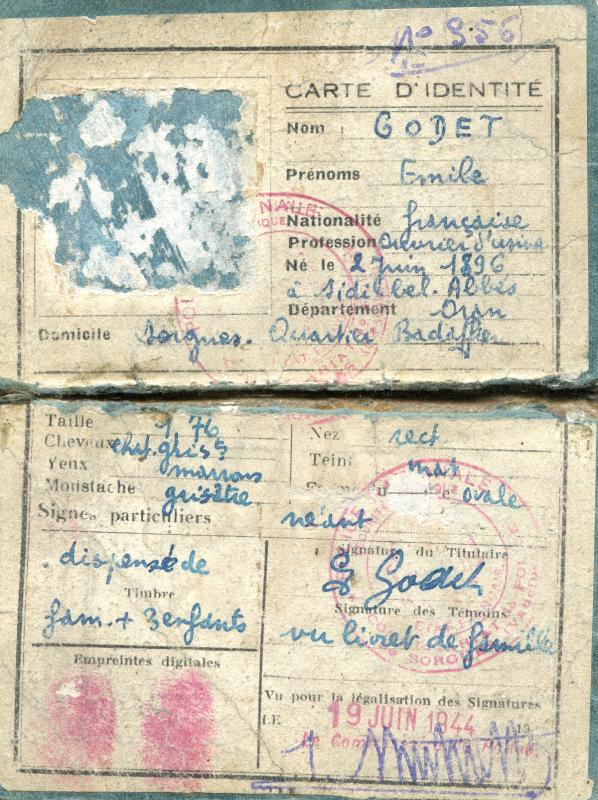 No 956
CARTE D'IDENTITÉ
Nom : GODET
Prénoms Emile
Nationalité française
Profession Ouvrier d'usine
Né le 2 juin 1896
à Sidi bel-Abbès
Département Oran
Domicile Sorgues. Quartier
Taille 1 76
Cheveux chat. gris
Yeux marrons
Moustache grisâtre
Signes particuliers néant
Nez rect
Teint mat
ovale
dispensé de
Timbre
fam. + 3 enfants
Empreintes digitales
Signature du Titulaire
E Godet
Signature des Témoins
vu livret de famille
Vu pour la légalisation des Signatures
LE 19 JUIN 1944 19